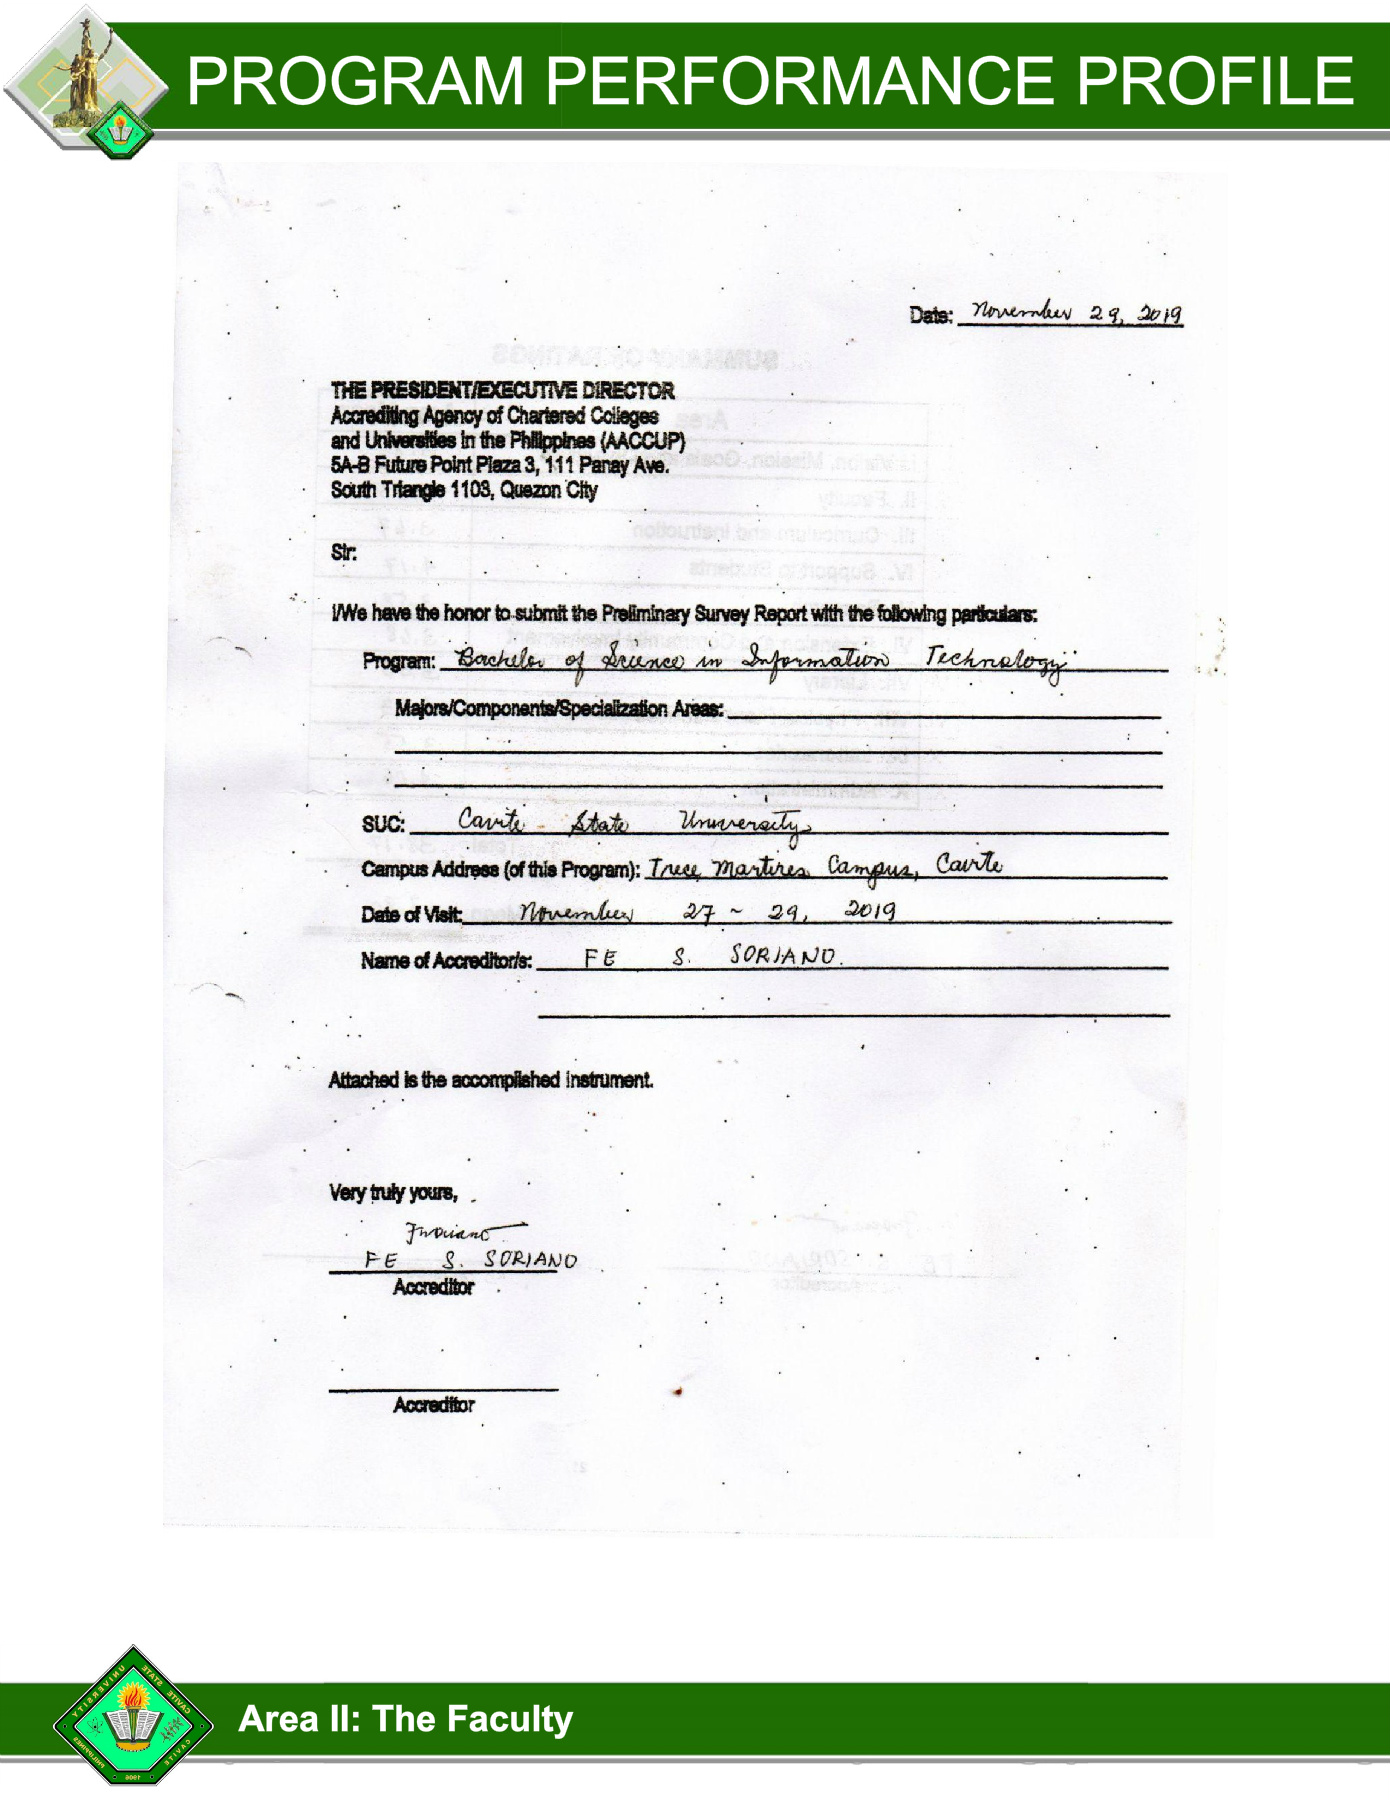 PROGRAM PERFORMANCE PROFILE
Date: November 29, 2019
THE PRESIDENT/EXECUTIVE DIRECTOR
Accrediting Agency of Chartered Colleges
and Universities in the Philippines (AACCUP)
5A-B Future Point Plaza 3, 111 Panay Ave.
South Triangle 1103, Quezon City
Sir:
I/We have the honor to submit the Preliminary Survey Report with the following particulars:
Program: Bachelor of Science in Information Technology
Majors/Components/Specialization Areas:
SUC: Cavite State University
Campus Address (of this Program): Trece Martires Campus, Cavite
Date of Visit: November 27 - 29, 2019
Name of Accreditor/s: FE S. SORIANO.
Attached is the accomplished instrument.
Very truly yours,
FE S. SORIANO
Accreditor
Accreditor
Area II: The Faculty
CAVITE STATE UNIVERSITY
CAVITE
PHILIPPINES
1906